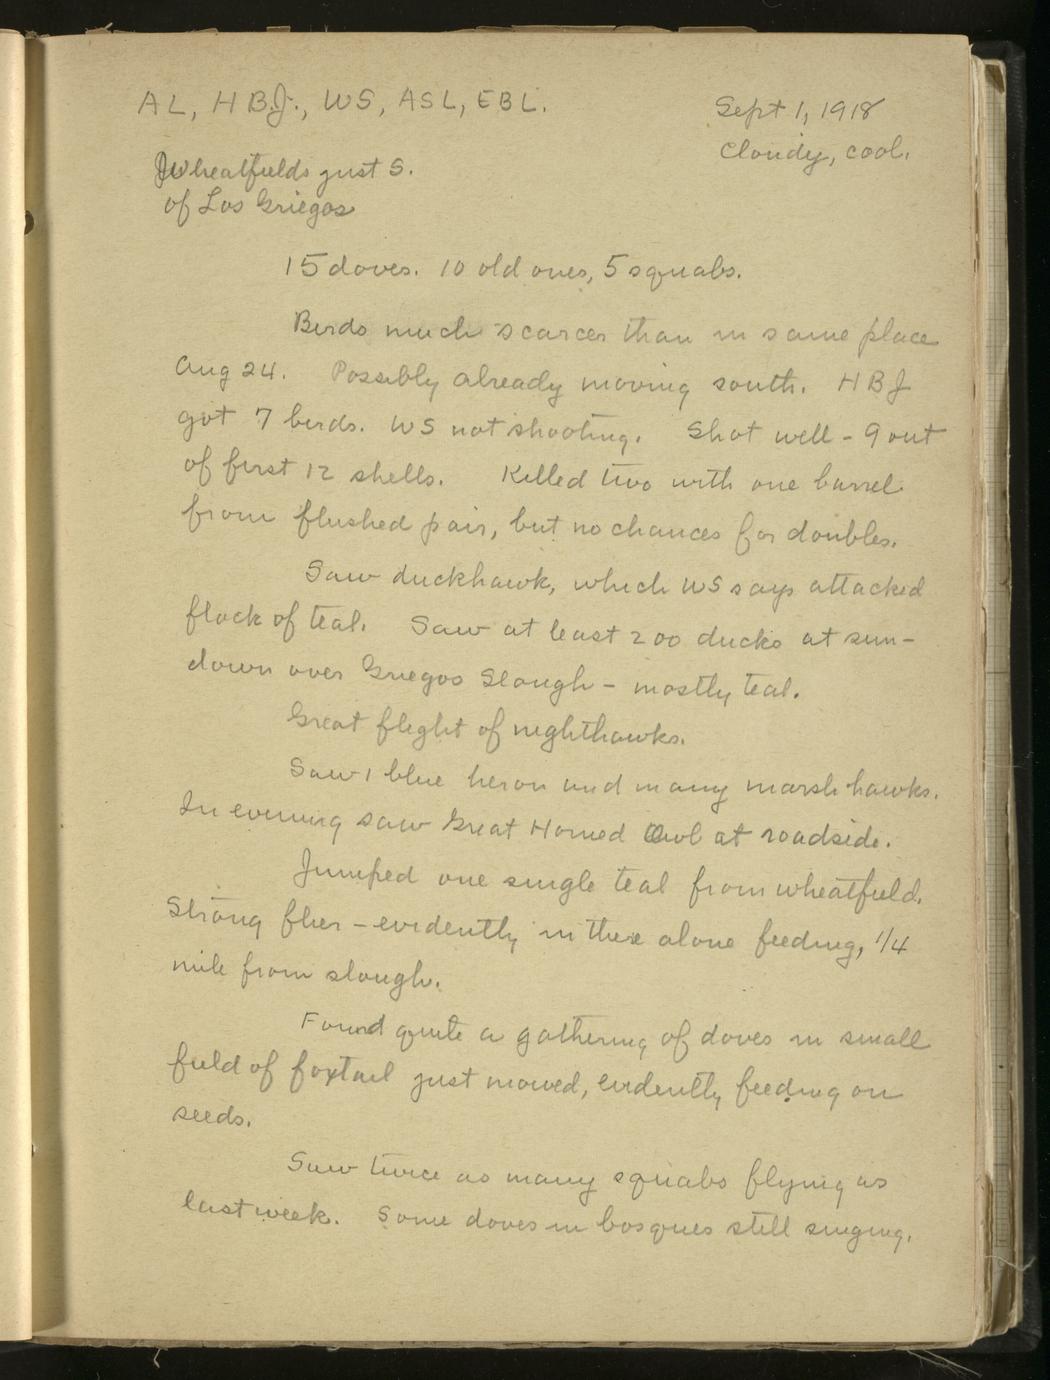 AL, HBJ., WS, ASL, EBL.
Sept 1, 1918
Cloudy, cool.
Wheatfields just S.
of Los Griegos
15 doves. 10 old ones, 5 squabs.
Birds much scarcer than in same place
Aug 24. Possibly already moving south. HBJ
got 7 birds. WS not shooting. Shot well - 9 out
of first 12 shells. Killed two with one barrel
from flushed pair, but no chances for doubles.
Saw duckhawk, which WS says attacked
flock of teal. Saw at least 200 ducks at sun-
down over Griegos Slough - mostly teal.
Great flight of nighthawks.
Saw 1 blue heron and many marsh hawks.
In evening saw Great Horned Owl at roadside.
Jumped one single teal from wheatfield.
Strong flier - evidently in there alone feeding, 1/4
mile from slough.
Found quite a gathering of doves in small
field of foxtail just mowed, evidently feeding on
seeds.
Saw twice as many squabs flying as
last week. Some doves in bosques still singing.